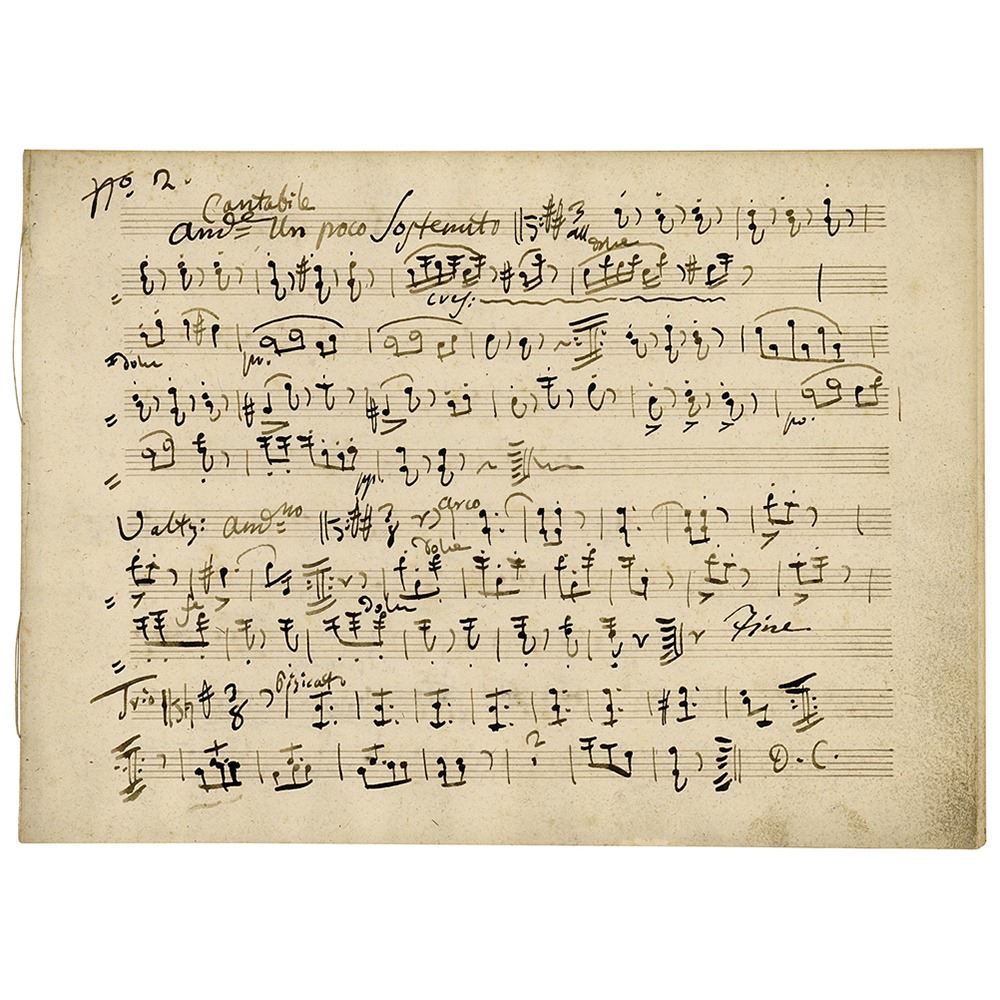 No. 2.
Cantabile
Ande Un poco Sostenuto
3
dolce
dolce
po.
po.
Waltz: Andno 3 8 arco
dolce
dolce
Fine
Trio 3 8 Pizicato
2 D. C.